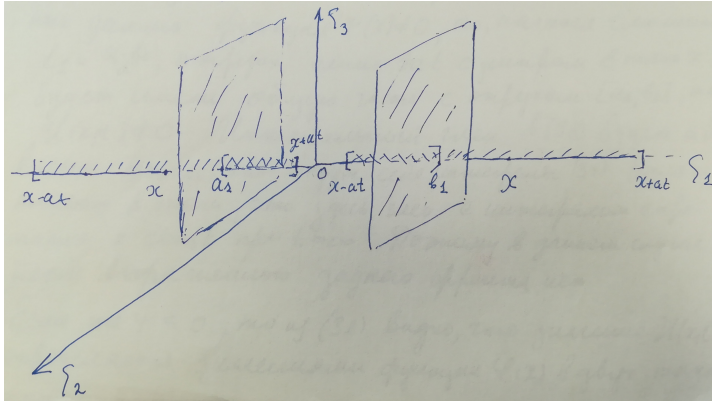 ξ₃
x+at
x-at
x
a₁
0
x-at
b₁
x
x+at
ξ₁
ξ₂